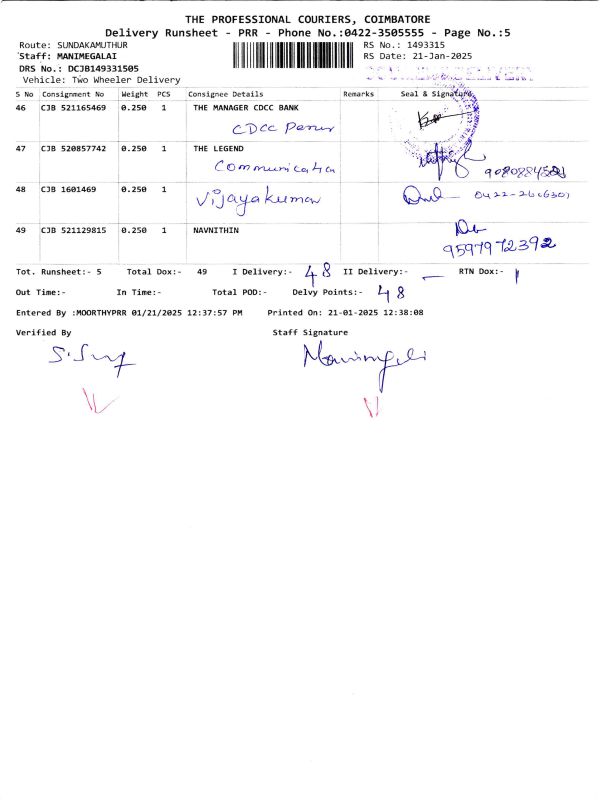 THE PROFESSIONAL COURIERS, COIMBATORE
Delivery Runsheet - PRR - Phone No.:0422-3505555 - Page No.:5
Route: SUNDAKAMUTHUR RS No.: 1493315
Staff: MANIMEGALAI RS Date: 21-Jan-2025
DRS No.: DCJB149331505
Vehicle: Two Wheeler Delivery
S No Consignment No Weight PCS Consignee Details Remarks Seal & Signature
46 CJB 521165469 0.250 1 THE MANAGER CDCC BANK
CDCC
47 CJB 520857742 0.250 1 THE LEGEND
Communication
48 CJB 1601469 0.250 1 Vijayakumar
49 CJB 521129815 0.250 1 NAVNITHIN
9597972392
Tot. Runsheet:- 5 Total Dox:- 49 I Delivery:- 48 II Delivery:- — RTN Dox:- 1
Out Time:- In Time:- Total POD:- Delvy Points:- 48
Entered By :MOORTHYPRR 01/21/2025 12:37:57 PM Printed On: 21-01-2025 12:38:08
Verified By Staff Signature